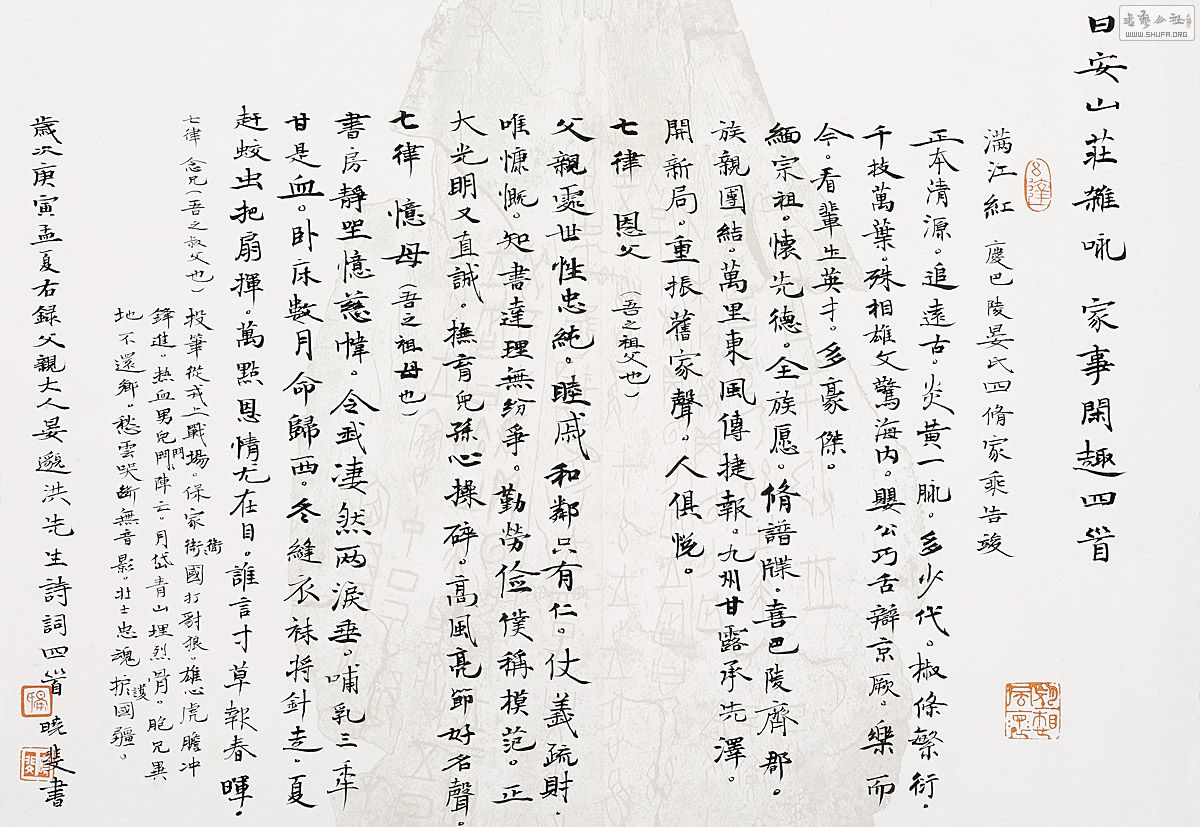 日安山莊雜咏 家事閑趣四首
满江紅 慶巴陵晏氏四脩家乘告竣
正本清源。追遠古。炎黄一脉。多少代。椒條繁衍。
千枝萬葉。殊相雄文驚海内。嬰公巧舌辯京厥。樂而
今。看輩出英才。多豪傑。
緬宗祖。懷先德。全族愿。脩譜牒。喜巴陵齊郡。
族親團結。萬里東風傳捷報。九州甘露承先澤。
開新局。重振舊家聲。人俱悦。
七律 恩父 （吾之祖父也）
父親處世性忠純。睦戚和鄰只有仁。仗義疏財.
唯慷慨。知書達理無紛爭。勤勞儉僕稱模范。正
大光明又直誠。撫育兒孫心操碎。高風亮節好名聲。
七律 憶母（吾之祖母也）
書房靜坐憶慈幃。令我凄然两淚垂。哺乳三年
甘是血。卧床數月命歸西。冬縫衣袜将針走。夏
赶蚊虫把扇揮。萬點恩情尤在目。誰言寸草報春暉。
七律 念兄（吾之叔父也） 投筆從戎上戰場。保家衛國打豺狼。雄心虎膽冲
鋒進。热血男兒鬥陣亡。月岱青山埋烈骨。胞兄異
地不還鄉。愁雲哭斷無音影。壯士忠魂护國疆。
歲次庚寅孟夏右録父親大人晏邈洪先生詩詞四首 曉斐書
书艺公社
WWW.SHUFA.ORG